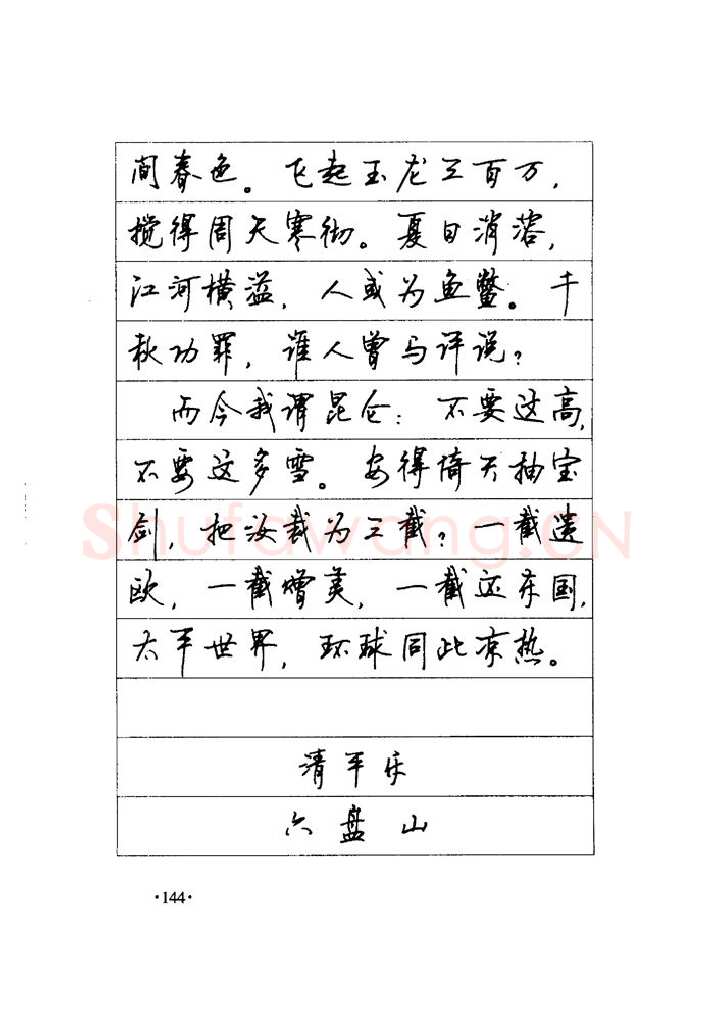 间春色。飞起玉龙三百万，
搅得周天寒彻。夏日消溶，
江河横溢，人或为鱼鳖。千
秋功罪，谁人曾与评说？
而今我谓昆仑：不要这高，
不要这多雪。安得倚天抽宝
剑，把汝裁为三截？一截遗
欧，一截赠美，一截还东国，
太平世界，环球同此凉热。
清平乐
六盘山
·144·
Shufawang.CN